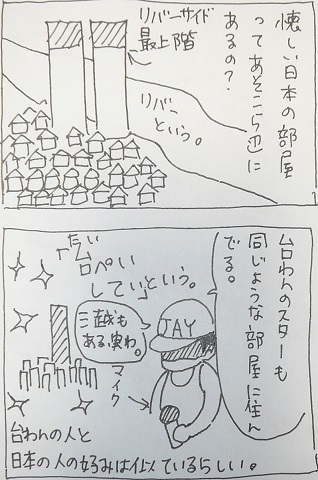 懐しい日本の部屋
ってあそこら辺に
あるの?
リバーサイド
最上階
リバー
という。
台わんのスターも
同じような部屋に住ん
でる。
「たい
台ぺい
してい」という。
三越も
ある、実わ。
JAY
マイク
台わんの人と
日本の人の好みは似ているらしい。